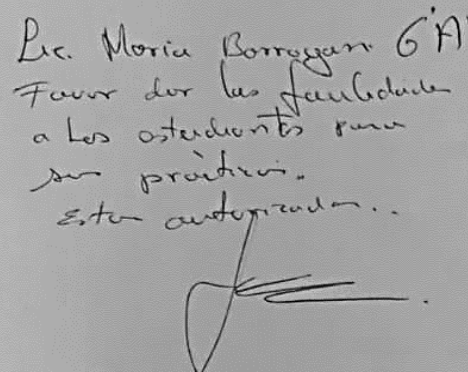 Lic. Maria Borrayan 6°"A"
Favor dar las facilidades
a los estudiantes para
su práctica.
Estan autorizados..